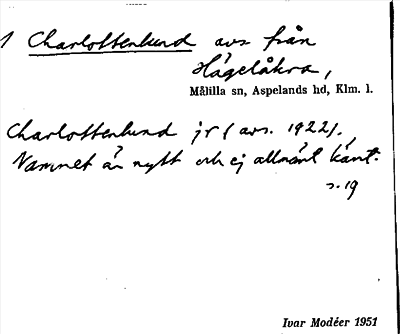 1 Charlottenlund avs från
Hagelåkra,
Målilla sn, Aspelands hd, Klm. l.
Charlottenlund jr (avs. 1922).
Namnet är nytt och ej allmänt känt.
s. 19
Ivar Modéer 1951